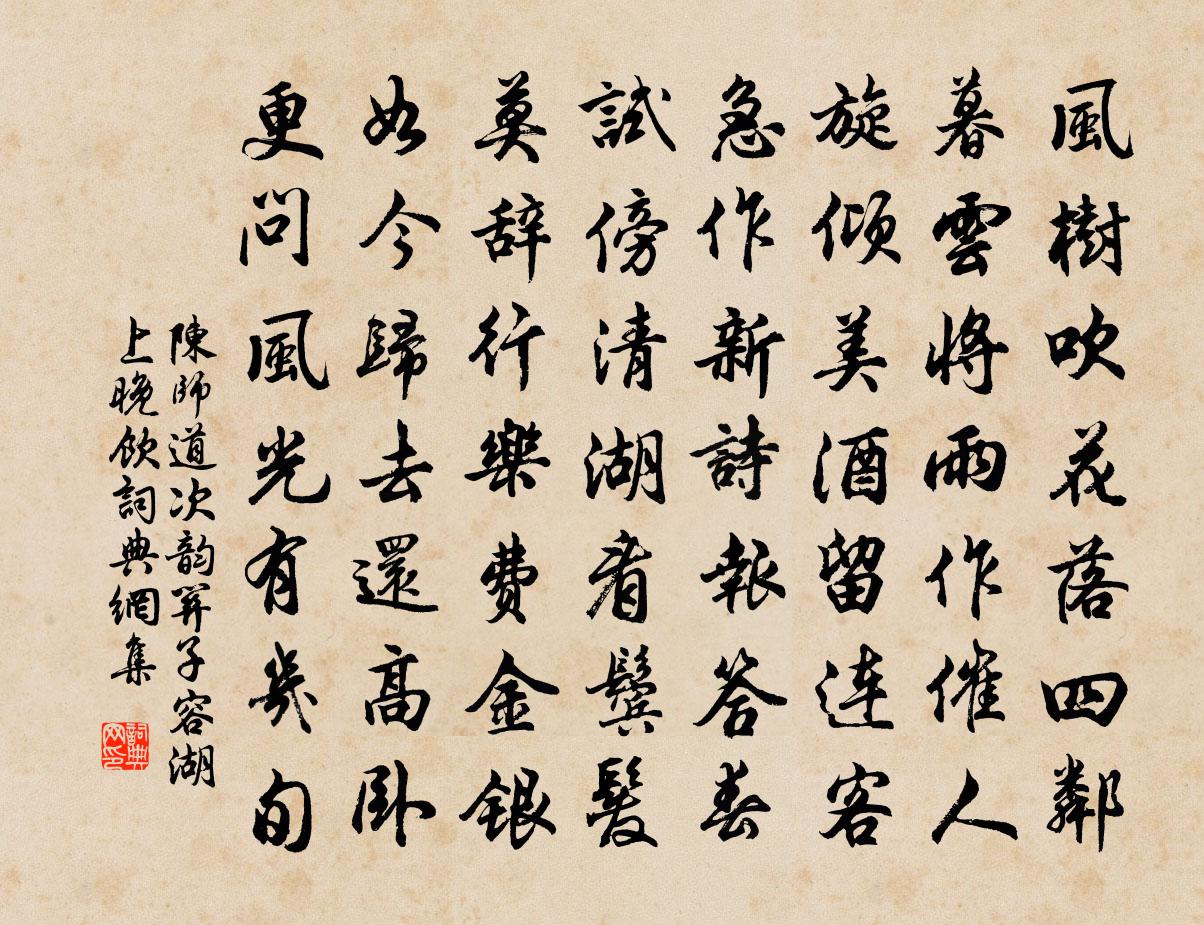 風樹吹花落四鄰
暮雲將雨作催人
旋傾美酒留連客
急作新詩報答春
試傍清湖看鬢髮
莫辭行樂費金銀
如今歸去還高臥
更問風光有幾旬
陳師道次韵關子容湖
上晚飲詞典網集
詞典
网印